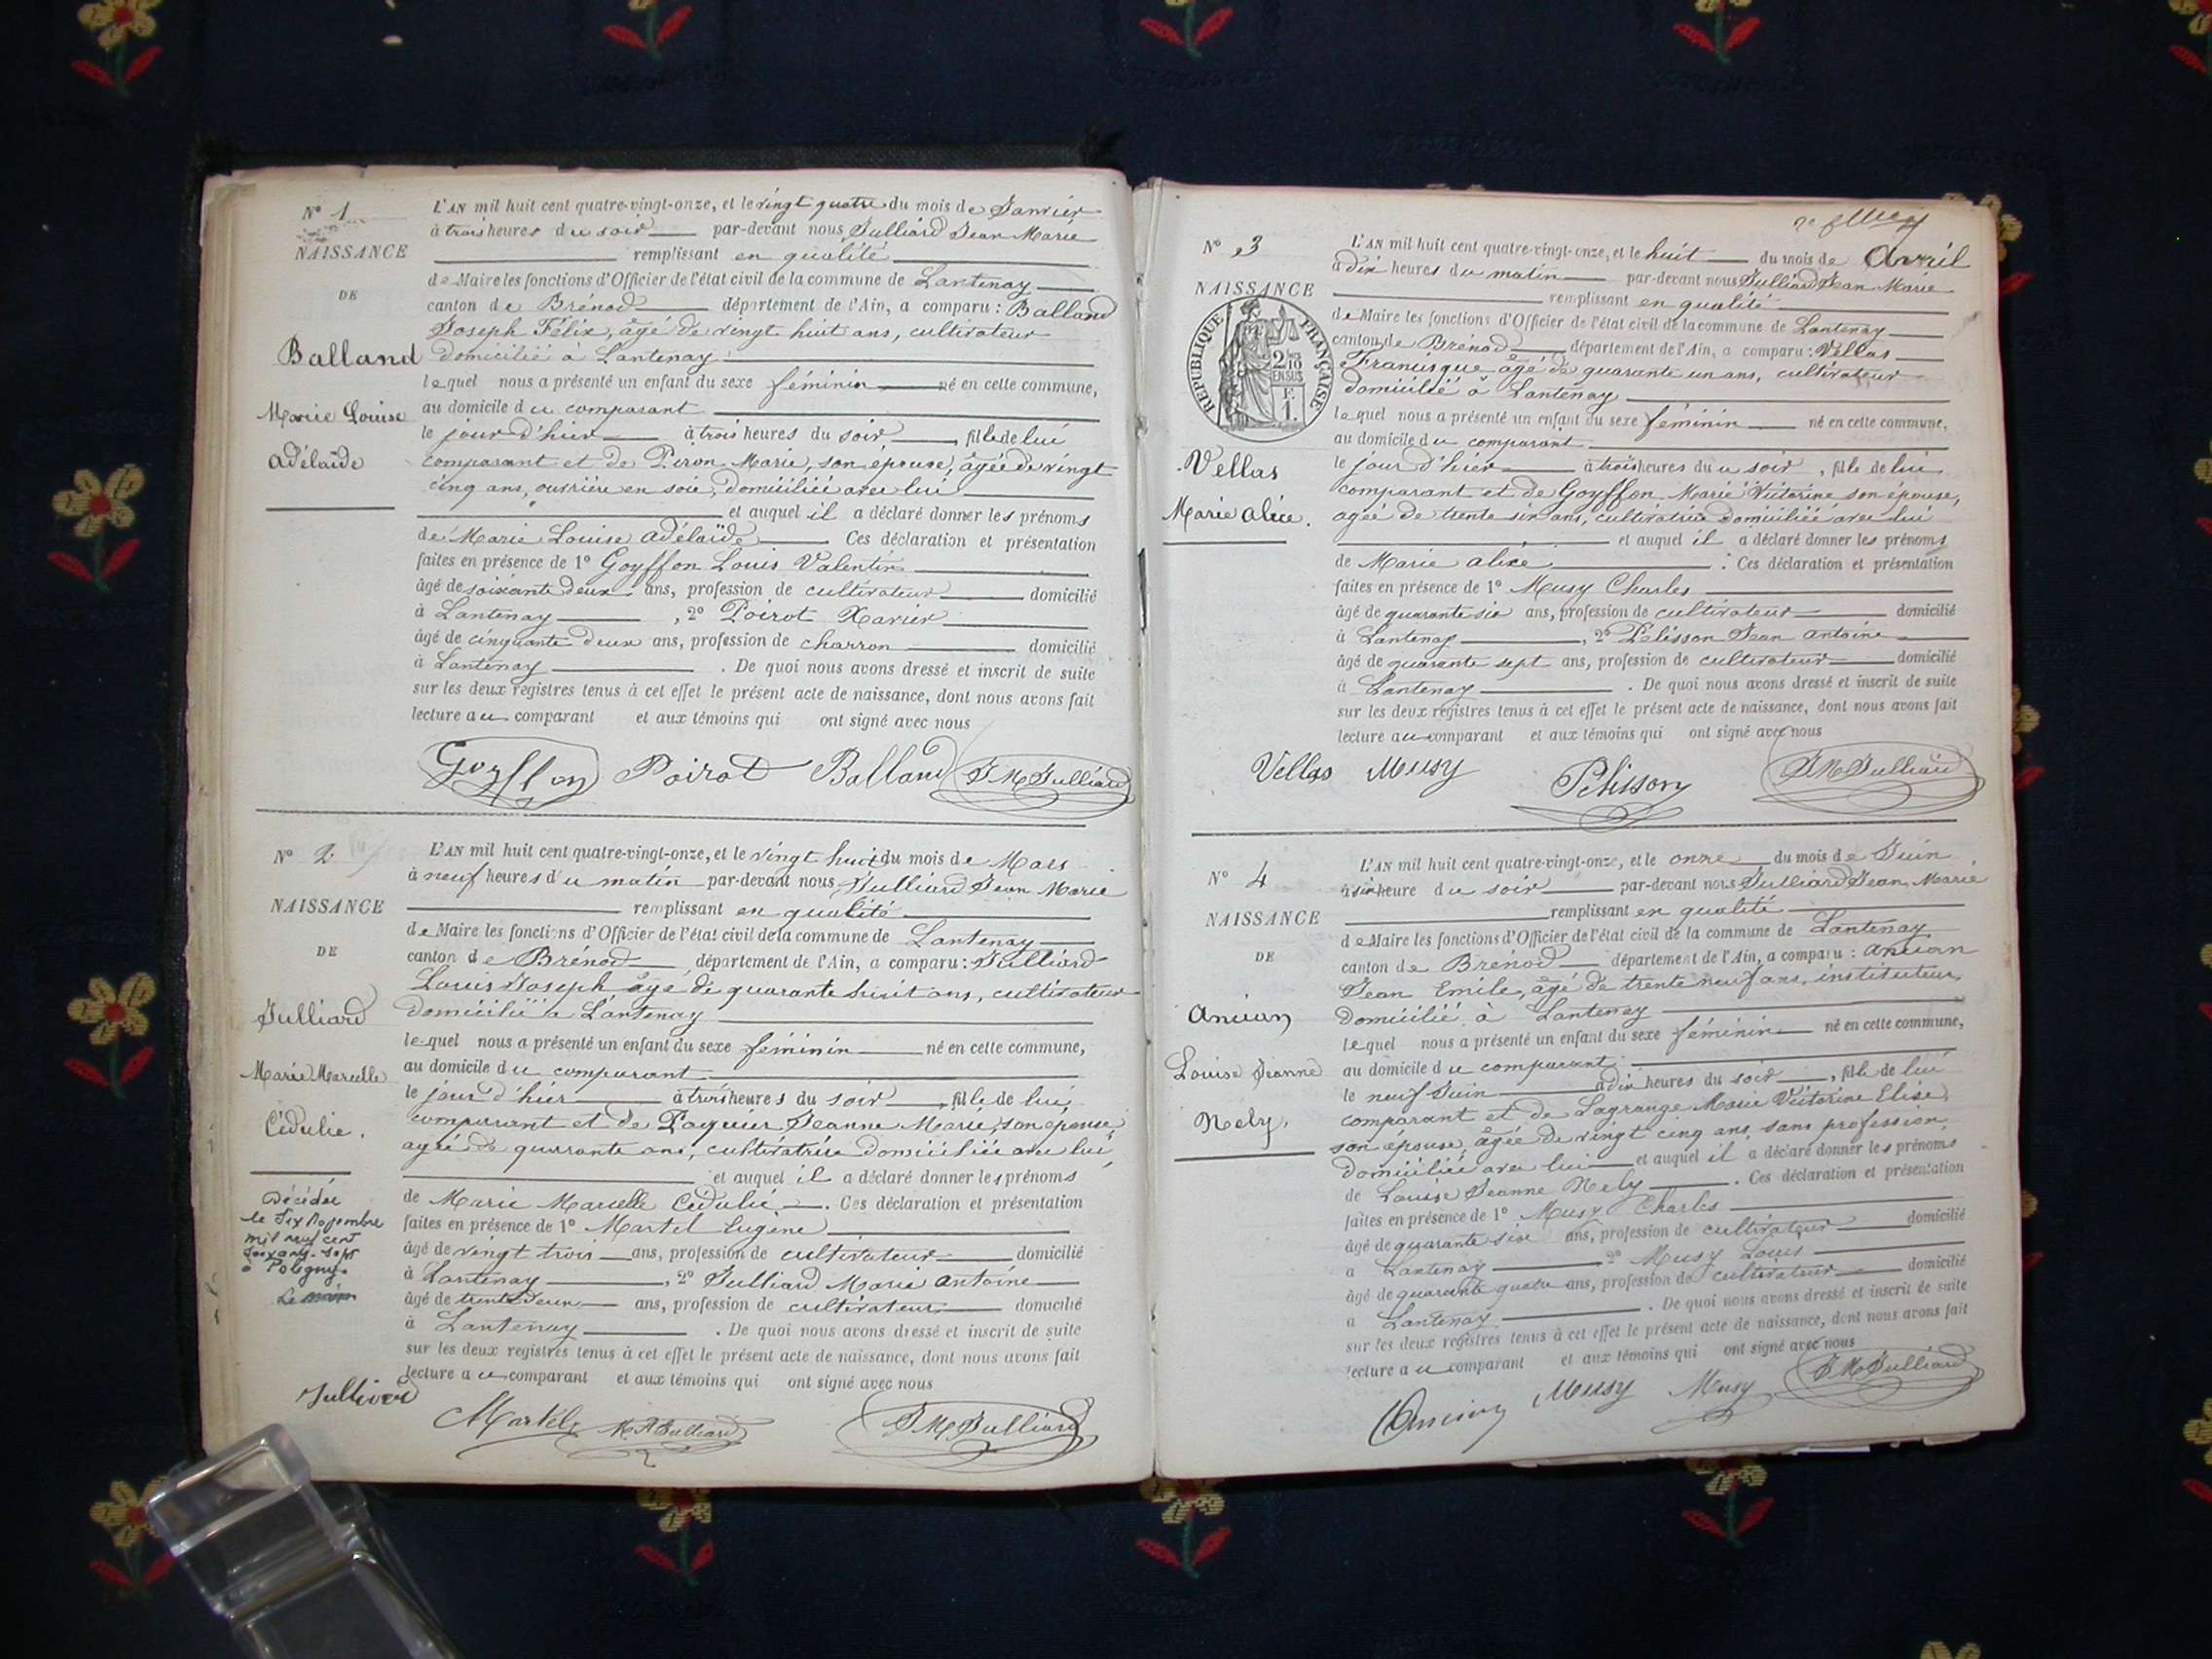 N° 1
NAISSANCE
DE
Balland
Marie Louise
Adélaïde
L'AN mil huit cent quatre-vingt-onze, et le vingt quatre du mois de Janvier
à trois heures du soir par-devant nous Julliard Jean Marie
remplissant en qualité
de Maire les fonctions d'Officier de l'état civil de la commune de Lantenay
canton de Brénod département de l'Ain, a comparu : Balland
Joseph Félix, âgé de vingt huit ans, cultivateur
domicilié à Lantenay
lequel nous a présenté un enfant du sexe féminin né en cette commune,
au domicile du comparant
le jour d'hier à trois heures du soir, fille de lui
comparant et de Peron Marie, son épouse, âgée de vingt
cinq ans, ouvrière en soie, domiciliée avec lui
et auquel il a déclaré donner les prénoms
de Marie Louise Adélaïde Ces déclaration et présentation
faites en présence de 1° Goyffon Louis Valentin
âgé de soixante deux ans, profession de cultivateur domicilié
à Lantenay , 2° Poirot Xavier
âgé de cinquante deux ans, profession de charron domicilié
à Lantenay . De quoi nous avons dressé et inscrit de suite
sur les deux registres tenus à cet effet le présent acte de naissance, dont nous avons fait
lecture au comparant et aux témoins qui ont signé avec nous
Goyffon Poirot Balland J M Julliard
N° 2
NAISSANCE
DE
Julliard
Marie Marcelle
Cédulie.
Décédée
le Six Novembre
mil neuf cent
soixante-sept
à Poligny.
Le maire
L'AN mil huit cent quatre-vingt-onze, et le vingt huit du mois de Mars
à neuf heures du matin par-devant nous Julliard Jean Marie
remplissant en qualité
de Maire les fonctions d'Officier de l'état civil de la commune de Lantenay
canton de Brénod département de l'Ain, a comparu : Julliard
Louis Joseph âgé de quarante huit ans, cultivateur
domicilié à Lantenay
lequel nous a présenté un enfant du sexe féminin né en cette commune,
au domicile du comparant
le jour d'hier à trois heures du soir, fille de lui
comparant et de Paquier Jeanne Marie, son épouse
agée de quarante ans, cultivatrice domiciliée avec lui
et auquel il a déclaré donner les prénoms
de Marie Marcelle Cédulie . Ces déclaration et présentation
faites en présence de 1° Martel Eugène
âgé de vingt trois ans, profession de cultivateur domicilié
à Lantenay , 2° Julliard Marie Antoine
âgé de trente deux ans, profession de cultivateur domicilié
à Lantenay . De quoi nous avons dressé et inscrit de suite
sur les deux registres tenus à cet effet le présent acte de naissance, dont nous avons fait
lecture au comparant et aux témoins qui ont signé avec nous
Julliard
Martel M A Julliard J M Julliard
N° 3
NAISSANCE
RÉPUBLIQUE FRANÇAISE
2/10
EN SUS
F.
1.
Vellas
Marie Alice.
L'AN mil huit cent quatre-vingt-onze, et le huit du mois de Avril
à dix heures du matin par-devant nous Julliard Jean Marie
remplissant en qualité
de Maire les fonctions d'Officier de l'état civil de la commune de Lantenay
canton de Brénod département de l'Ain, a comparu : Vellas
Francisque âgé de quarante un ans, cultivateur
domicilié à Lantenay
lequel nous a présenté un enfant du sexe féminin né en cette commune,
au domicile du comparant
le jour d'hier à trois heures du soir, fille de lui
comparant et de Goyffon Marie Victorine son épouse,
agée de trente six ans, cultivatrice domiciliée avec lui
et auquel il a déclaré donner les prénoms
de Marie Alice . Ces déclaration et présentation
faites en présence de 1° Musy Charles
âgé de quarante six ans, profession de cultivateur domicilié
à Lantenay , 2° Pélisson Jean Antoine
âgé de quarante sept ans, profession de cultivateur domicilié
à Lantenay . De quoi nous avons dressé et inscrit de suite
sur les deux registres tenus à cet effet le présent acte de naissance, dont nous avons fait
lecture au comparant et aux témoins qui ont signé avec nous
Vellas Musy Pelisson J M Julliard
N° 4
NAISSANCE
DE
Ancian
Louise Jeanne
Nely.
L'AN mil huit cent quatre-vingt-onze, et le onze du mois de Juin
heure du soir par-devant nous Julliard Jean Marie
remplissant en qualité
de Maire les fonctions d'Officier de l'état civil de la commune de Lantenay
canton de Brénod département de l'Ain, a comparu : Ancian
Jean Emile, âgé de trente neuf ans, instituteur
domicilié à Lantenay
lequel nous a présenté un enfant du sexe féminin né en cette commune,
au domicile du comparant
le neuf Juin à dix heures du soir, fille de lui
comparant et de Lagrange Marie Victorine Elise,
son épouse, âgée de vingt cinq ans, sans profession,
domiciliée avec lui et auquel il a déclaré donner les prénoms
de Louise Jeanne Nely . Ces déclaration et présentation
faites en présence de 1° Musy Charles
âgé de quarante six ans, profession de cultivateur domicilié
à Lantenay 2° Musy Louis
âgé de quarante quatre ans, profession de cultivateur domicilié
à Lantenay . De quoi nous avons dressé et inscrit de suite
sur les deux registres tenus à cet effet le présent acte de naissance, dont nous avons fait
lecture au comparant et aux témoins qui ont signé avec nous
Ancian Musy Musy J M Julliard